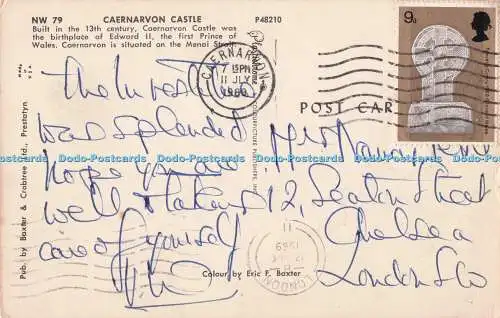 NW 79 CAERNARVON CASTLE P48210
Built in the 13th century, Caernarvon Castle was
the birthplace of Edward II, the first Prince of
Wales. Caernarvon is situated on the Menai Strait.
CAERNARVON
7 15PM
11 JLY
1969
9D
POST CAR
The Investiture
was splendid
hope you are
well. Take
care of yourself
Mrs
12, Seaton Street
Chelsea
London SW
LONDON
1969
Pub. by Baxter & Crabtree Ltd., Prestatyn
Colour by Eric F. Baxter
Dodo-Postcards Dodo-Postcards Dodo-Postcards Dodo-Postcards